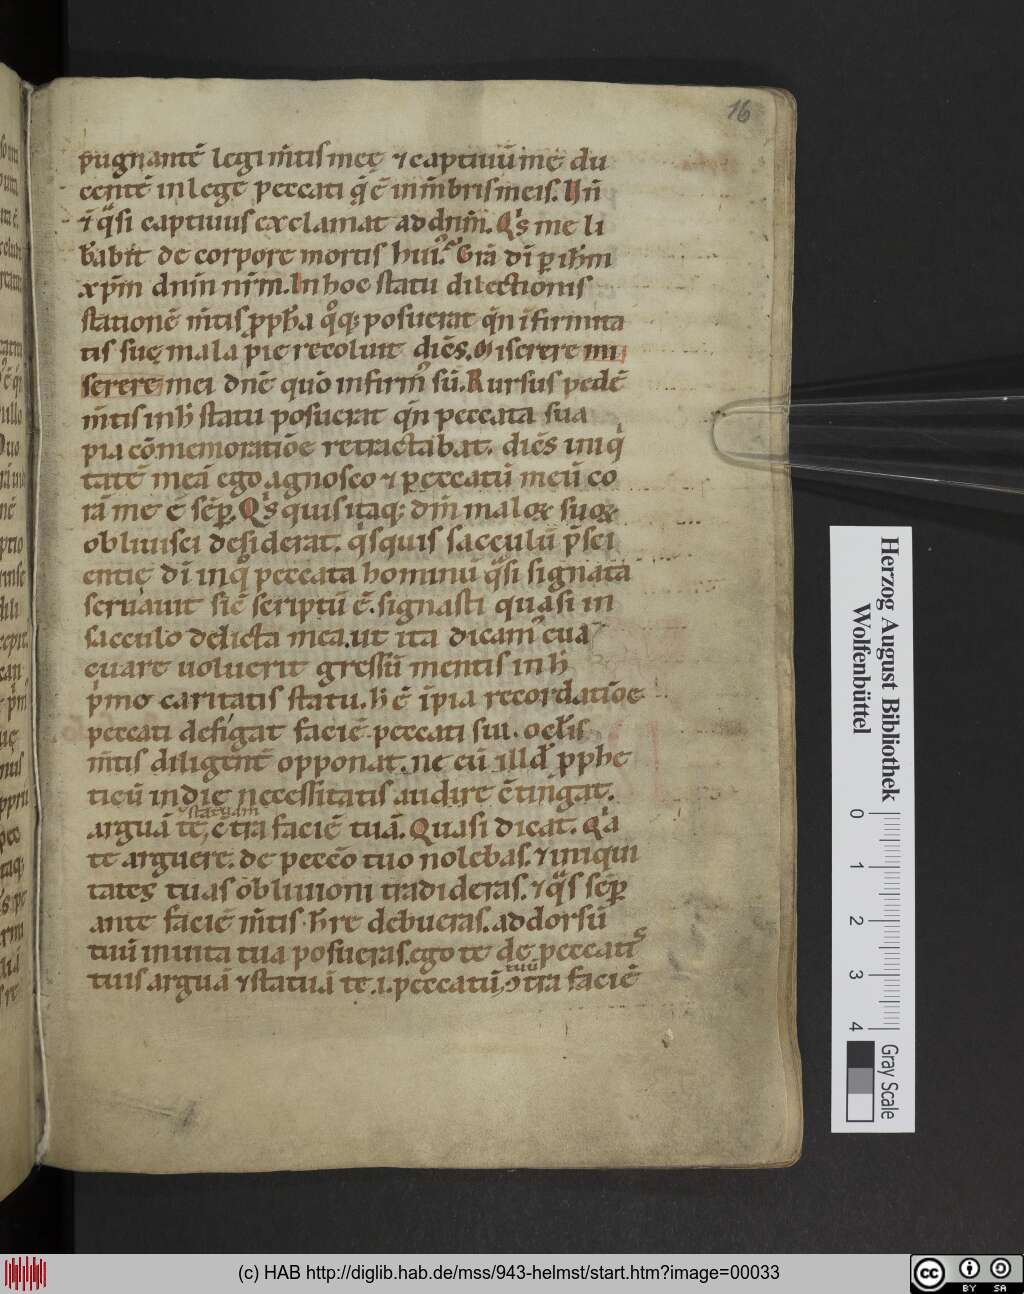 16
pugnantē legi m̄tis meę ⁊ captiuū me du
centē in lege peccati q̄ ē in m̄bris meis. Hn̄
ē q̊si captiuus exclamat ad dn̄m. Q's me li
b̄abit de corpore mortis hui᷒. Grā dī ꝑ ihm̄
xp̄m dn̄m nr̄m. In hoc statu dilectionis
stationē m̄tis ꝓph̄a q̊q; posuerat qn̄ īfirmita
tis suę mala pie recoluit diēs. Miserere mi
serere mei dnē quō infirm᷒ sū. Rursus pedē
m̄tis in h̄ statu posuerat qn̄ peccata sua
pia cōmemoratiōe retractabat. diēs iniq̇
tatē meā ego agnosco ⁊ peccatū meū co
rā me ē sēꝑ. Q's quis itaq; dm̄ maloꝝ suoꝝ
obliuisci desiderat. q̇squis sacculū p̄sci
entię dī in q̊ peccata hominū q̊si signata
seruauit sic̄ scriptū ē. signasti quasi in
sacculo delicta mea. ut ita dicam᷒ eua
cuare uoluerit gressū mentis in h̄
ṗmo caritatis statu. h̄ ē īpia recordatiōe
peccati defigat faciē peccati sui. ocl̄is
m̄tis diligent̄ē opponat. ne cū illđ ꝓphe
ticū in die necessitatis audire c̄tingat.
arguā te, ꝯtra faciē tuā. Quasi dicat. Q̇a
statuam
te arguere. de peccō tuo nolebas. ⁊ iniqui
tates tuas obliuioni tradideras. ⁊ q̊s sēꝑ
ante faciē m̄tis h̄re debueras. ad dorsū
tuū inuita tua posueras. ego te de peccatis
tuis arguā ⁊ statuā te .i. peccatū, ꝯtra faciē
tuū
Herzog August Bibliothek
Wolfenbüttel
0 1 2 3 4
Gray Scale
(c) HAB http://diglib.hab.de/mss/943-helmst/start.htm?image=00033
cc BY SA